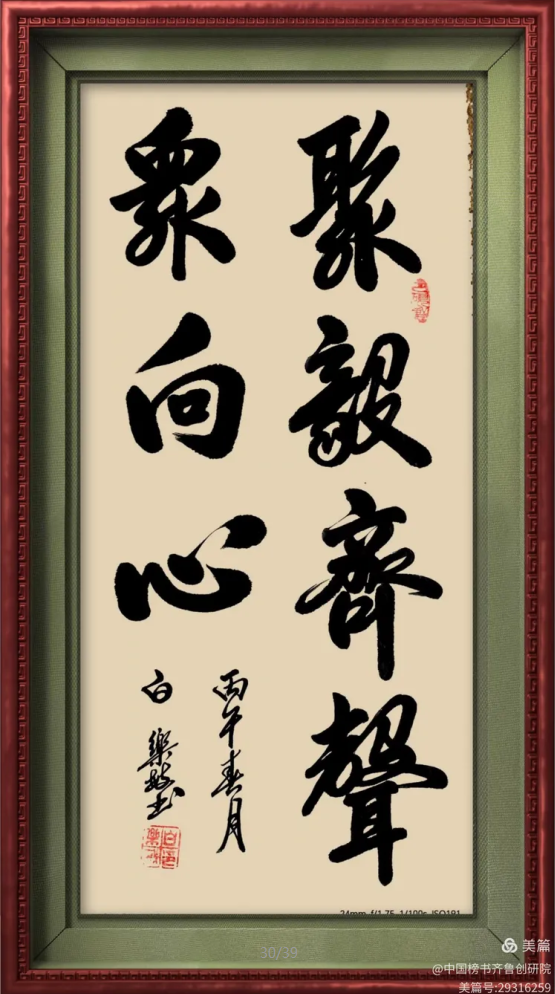 聚毅齊聲
衆向心
丙午春月
白樂敏书
24mm f/1.75 1/100s ISO191
30/39
美篇
@中国榜书齐鲁创研院
美篇号:29316259